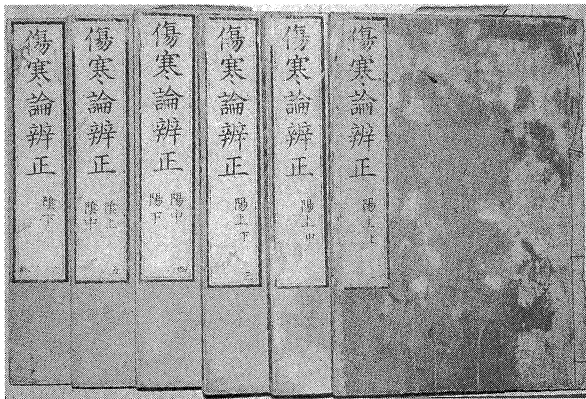 傷寒論辨正
陽上上
一
傷寒論辨正
陽上中
傷寒論辨正
陽上下
三
傷寒論辨正
陽中
陽下
四
傷寒論辨正
陰上
陰中
五
傷寒論辨正
陰下